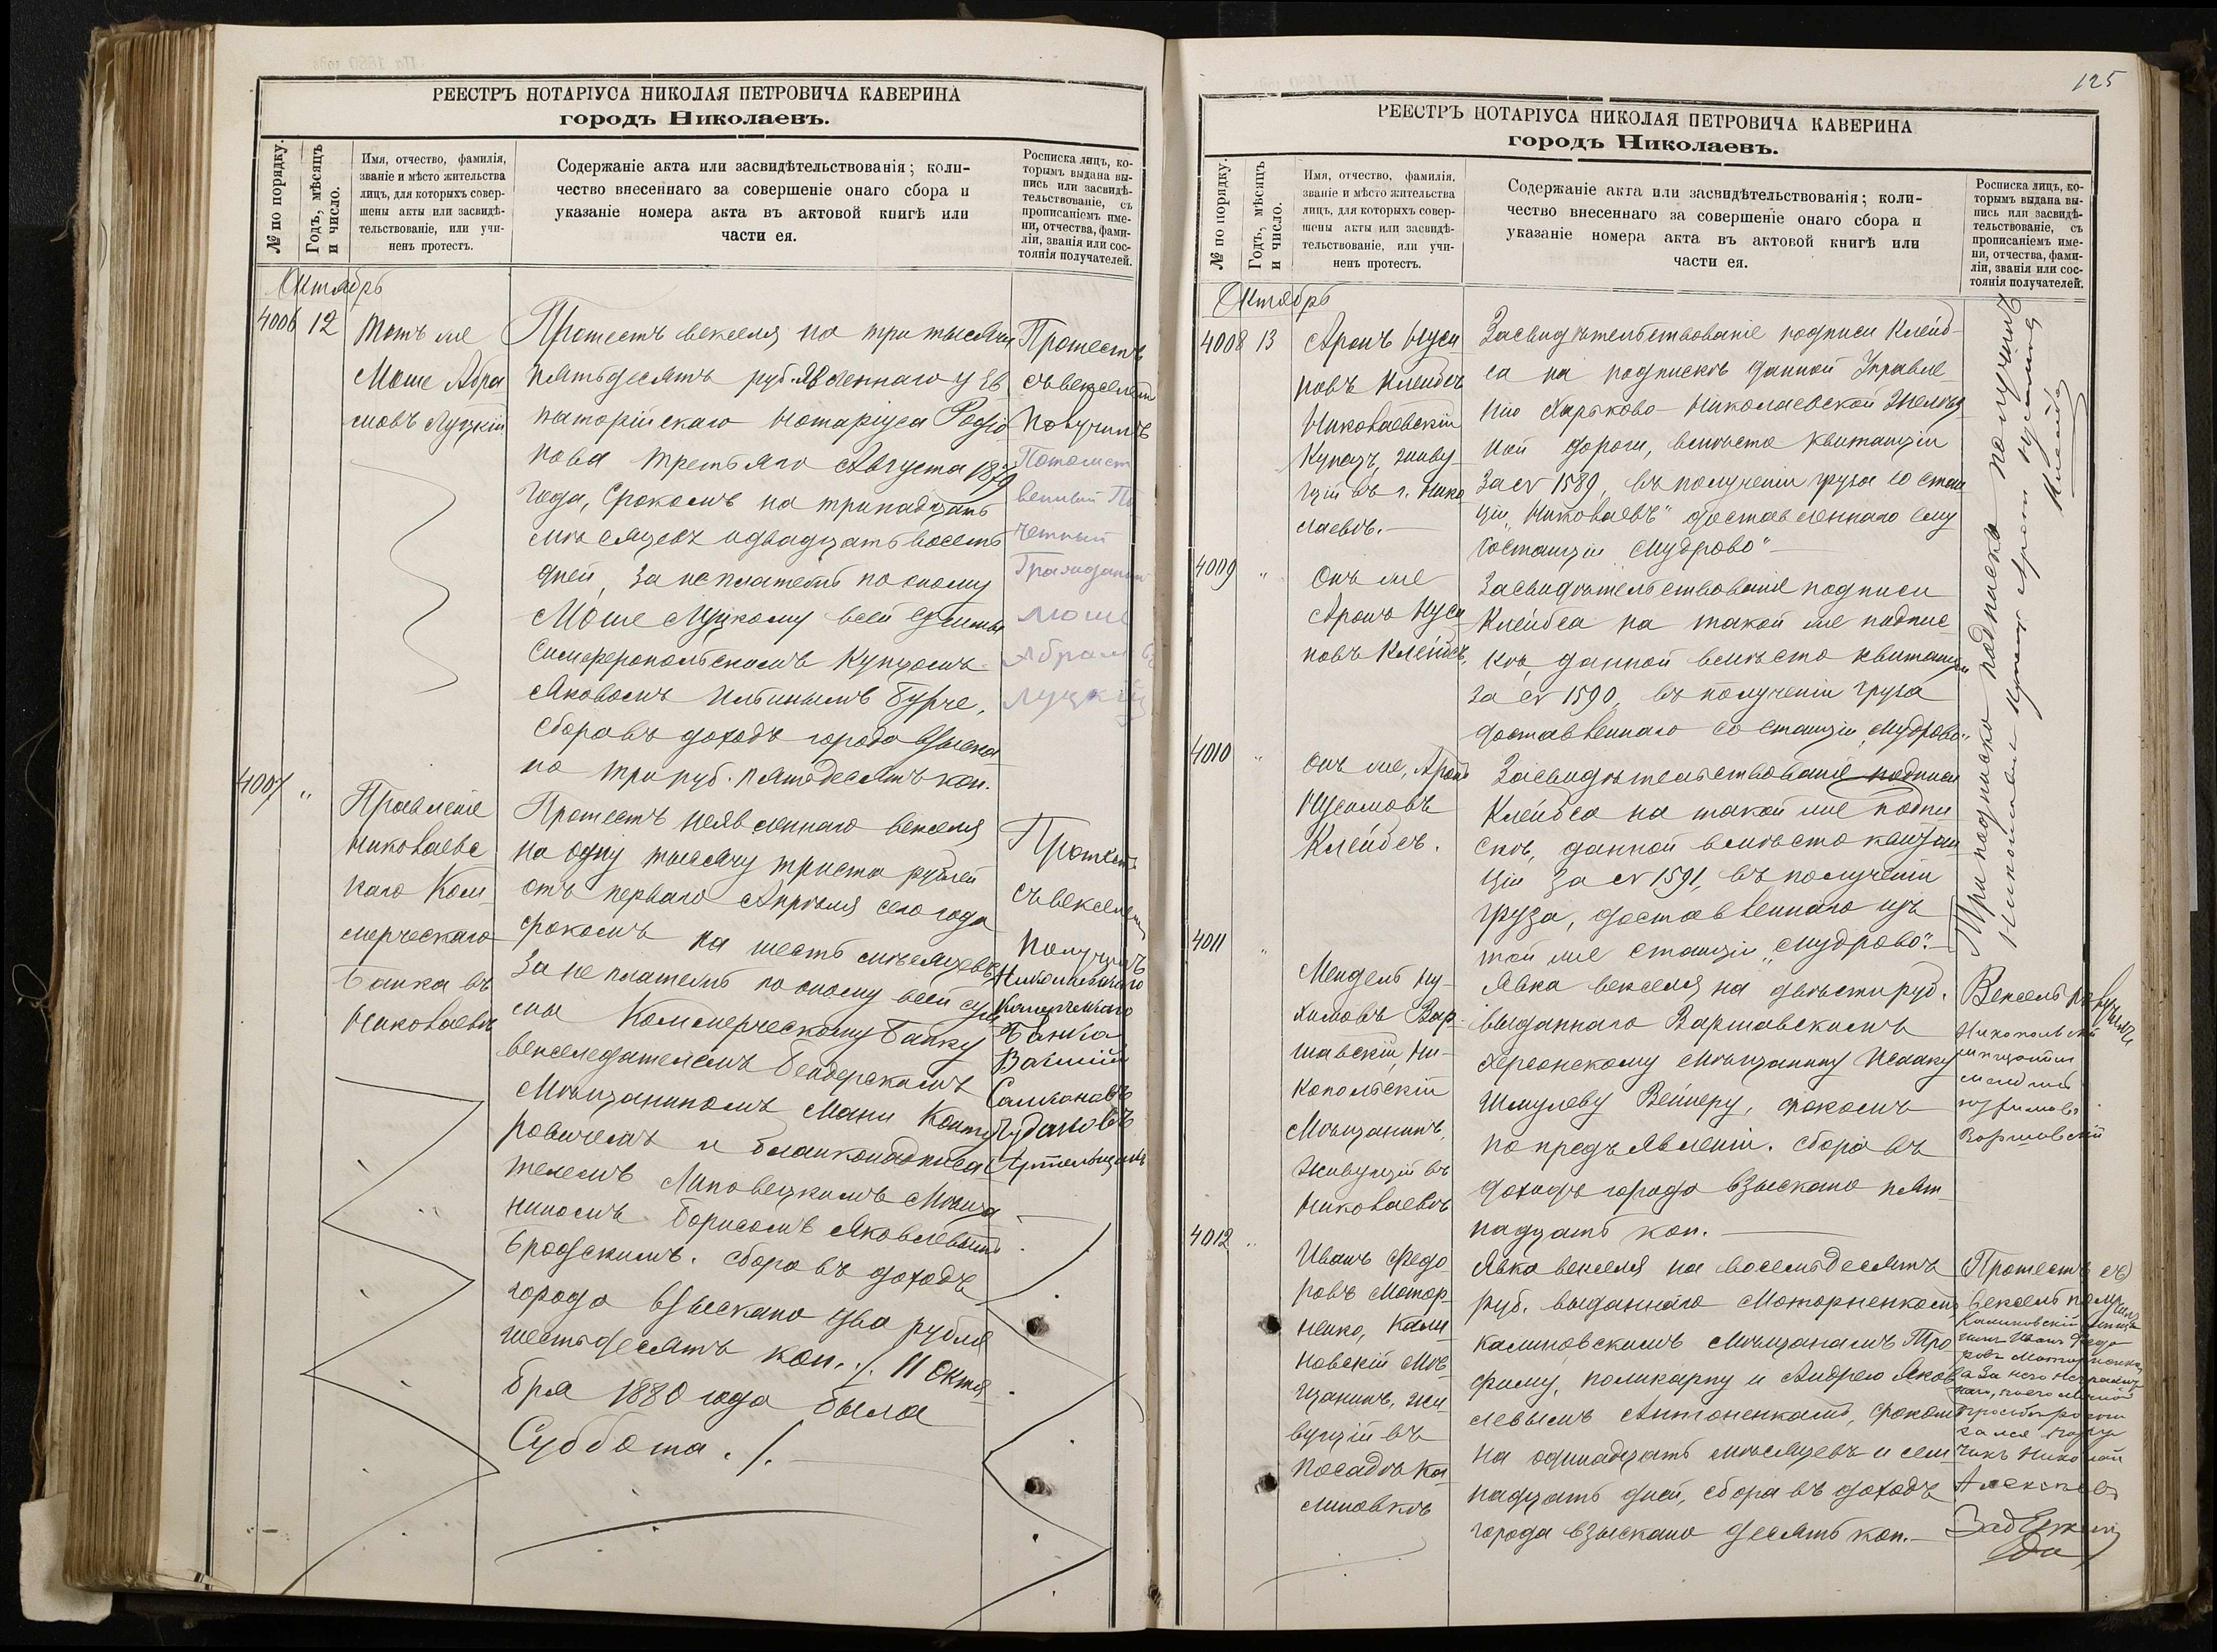 РЕЕСТРЪ НОТАРІУСА НИКОЛАЯ ПЕТРОВИЧА КАВЕРИНА
городъ Николаевъ.
№ по порядку.
Годъ, мѣсяцъ
и число.
Имя, отчество, фамилія,
званіе и мѣсто жительства
лицъ, для которыхъ совер-
шены акты или засвидѣ-
тельствованіе, или учи-
ненъ протестъ.
Содержаніе акта или засвидѣтельствованія; коли-
чество внесеннаго за совершеніе онаго сбора и
указаніе номера акта въ актовой книгѣ или
части ея.
Росписка лицъ, ко-
торымъ выдана вы-
пись или засвидѣ-
тельствованіе, съ
прописаніемъ име-
ни, отчества, фами-
ліи, званія или сос-
тоянія получателей.
Октябрь
4006 12
Тотъ же
Моше Абра
мовъ Луцкій
Протестъ векселя на три тысячи
пятьдесятъ руб. явленнаго у Ев
паторійскаго Нотаріуса Родіо
нова третьяго Августа 1879
года, срокомъ на тринадцать
мѣсяцевъ и двадцать восемь
дней, за неплатежъ по оному
Моше Луцкому всей суммы
Симферопольскимъ Купцомъ
Яковомъ Ильинымъ Бурче,
сбора въ доходъ города взыска
но три руб. пятьдесятъ коп.
Протестъ
съ векселемъ
получилъ
Потомст
венный По
четный
Гражданин
Моше
Абрамовъ
Луцкій
4007 "
Правленіе
Николаевс
каго Ком
мерческаго
Банка въ
Николаевѣ
Протестъ неявленнаго векселя
на одну тысячу триста рублей
отъ перваго Апрѣля сего года
срокомъ на шесть мѣсяцевъ
за не платежъ по оному всей сум
мы Коммерческому Банку
векселедателемъ Бендерскимъ
Мѣщаниномъ Мани Конту
ровичемъ и бланконадписа
телемъ Липовецкимъ Мѣща
ниномъ Борисомъ Яковлевымъ
Бродскимъ. Сбора въ доходъ
города взыскано два рубля
шестьдесятъ коп. ./. 11 Октя
бря 1880 года была
Суббота ./.
Протестъ
съ векселемъ
получилъ
Николаевскаго
Комерческаго
Банка
Василій
Самсоновъ
Гудановъ
Артельщикъ
125
РЕЕСТРЪ НОТАРІУСА НИКОЛАЯ ПЕТРОВИЧА КАВЕРИНА
городъ Николаевъ.
№ по порядку.
Годъ, мѣсяцъ
и число.
Имя, отчество, фамилія,
званіе и мѣсто жительства
лицъ, для которыхъ совер-
шены акты или засвидѣ-
тельствованіе, или учи-
ненъ протестъ.
Содержаніе акта или засвидѣтельствованія; коли-
чество внесеннаго за совершеніе онаго сбора и
указаніе номера акта въ актовой книгѣ или
части ея.
Росписка лицъ, ко-
торымъ выдана вы-
пись или засвидѣ-
тельствованіе, съ
прописаніемъ име-
ни, отчества, фами-
ліи, званія или сос-
тоянія получателей.
Октябрь
4008 13
Аронъ Нуси
новъ Клейбсъ
Николаевскій
Купецъ, живу
щій въ г. Нико
лаевѣ.
Засвидѣтельствованіе подписи Клейб
са на подпискѣ данной Управле
нію Харьково-Николаевской Желѣз
ной дороги, вмѣсто квитанціи
за № 1589, въ полученіи груза со стан
ціи "Николаевъ" доставленнаго ему
со станціи "Мудрово"
4009 "
Онъ же
Аронъ Нуси
новъ Клейбсъ,
Засвидѣтельствованіе подписи
Клейбса на такой же подпис
кѣ, данной вмѣсто квитанціи
за № 1590, въ полученіи груза
доставленнаго со станціи "Мудрово"
4010 "
Онъ же, Аронъ
Нусиновъ
Клейбсъ.
Засвидѣтельствованіе подписи
Клейбса на такой же подпи
скѣ, данной вмѣсто квитан
ціи за № 1591, въ полученіи
груза, доставленнаго изъ
той же станціи "Мудрово".
получилъ
Аронъ
Клейбсъ
4011 "
Мендель Ну-
химовъ Вар-
шавскій, Ни-
копольскій
Мѣщанинъ,
живущій въ
Николаевѣ
Явка векселя на двѣсти руб.
выданнаго Варшавскимъ
Херсонскому Мѣщанину Исааку
Шмулеву Вейнеру, срокомъ
по предъявленіи. Сбора въ
доходъ города взыскано пят
надцать коп.
Вексель получилъ
Никопольскій
мещанин
Мендель
Нухимовъ
Варшавскій
4012 "
Иванъ Федо
ровъ Мотор-
ненко, Кали
новскій Мѣ
щанинъ, жи
вущій въ
посадѣ Ка
линовкѣ
Явка векселя на восемьдесятъ
руб. выданнаго Моторненкомъ
Калиновскимъ Мѣщанамъ Тро
фиму, Поликарпу и Андрею Яков
левымъ Антоненкамъ, срокомъ
на одинадцать мѣсяцевъ и сем
надцать дней, сбора въ доходъ
города взыскано десять коп.
Протестъ съ
векселъ получилъ
Калиновскій мѣща
нинъ Иванъ Федо
ровъ Моторненко
а за него неграмот
наго, по его личной
просьбѣ роспи
сался
Николай
Алексѣевъ